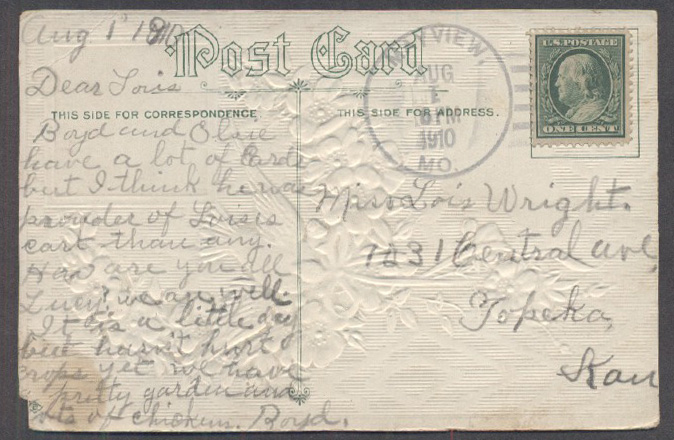 Aug 1' 1910
Post Card
THIS SIDE FOR CORRESPONDENCE
THIS SIDE FOR ADDRESS.
U.S. POSTAGE
ONE CENT
VIEW,
AUG
1
1910
MO.
Dear Lois
Boyd and Elsie
have a lot of Cards
but I think he was
prouder of Loisis
card than any.
How are you all
Lucy? we are well.
It is a little dry
but hasn't hurt
crops yet we have
pretty garden and
lots of chickens. Boyd.
Miss Lois Wright.
1231 Central Ave,
Topeka,
Kan